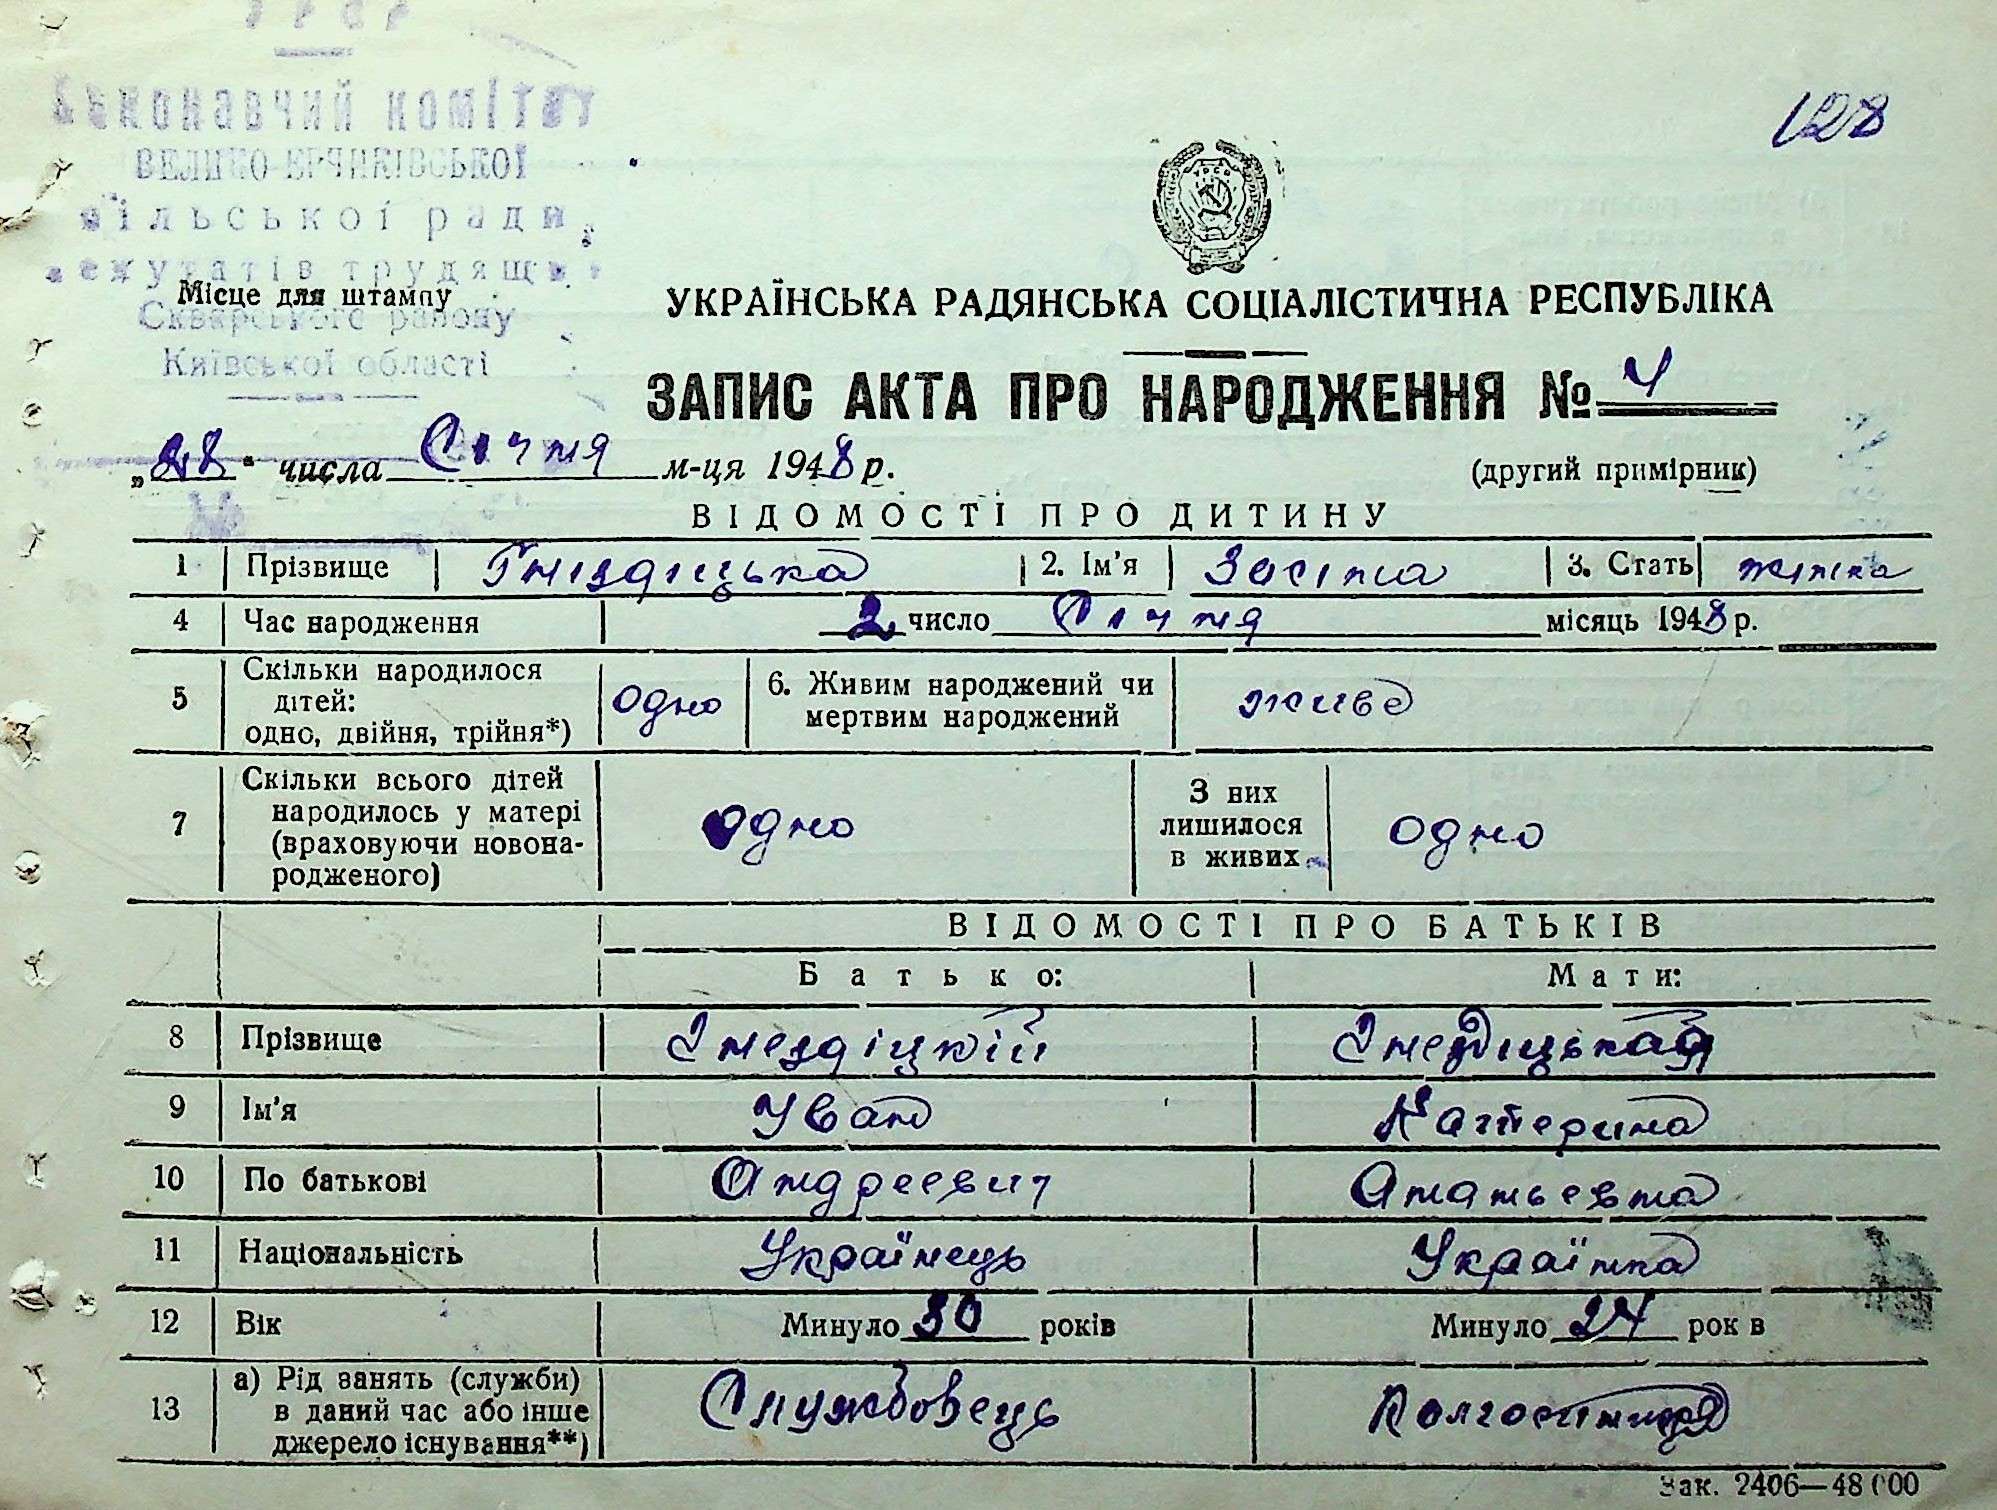 УРСР
Виконавчий комітет
ВЕЛИКО-ЕРЧИКІВСЬКОЇ
сільської ради
депутатів трудящих
Місце для штампу
Сквирського району
Київської області
128
УРСР
УКРАЇНСЬКА РАДЯНСЬКА СОЦІАЛІСТИЧНА РЕСПУБЛІКА
ЗАПИС АКТА ПРО НАРОДЖЕННЯ № 4
„28" числа Січня м-ця 1948 р.
(другий примірник)
ВІДОМОСТІ ПРО ДИТИНУ
1 Прізвище Гніздіцька 2. Ім'я 3. Стать жінка
4 Час народження 2 число Січня місяць 1948 р.
5 Скільки народилося дітей: одно, двійня, трійня*) одно 6. Живим народжений чи мертвим народжений живе
7 Скільки всього дітей народилось у матері (враховуючи новонародженого) одно З них лишилося в живих одно
ВІДОМОСТІ ПРО БАТЬКІВ
Батько: Мати:
8 Прізвище Гнездіцкий Гнездіцькая
9 Ім'я Іван Катерина
10 По батькові Андреевич Анатьевна
11 Національність Українець Українка
12 Вік Минуло 30 років Минуло 24 рок в
13 а) Рід занять (служби) в даний час або інше джерело існування**) Службовець Колгоспниця
Зак. 2406—48000